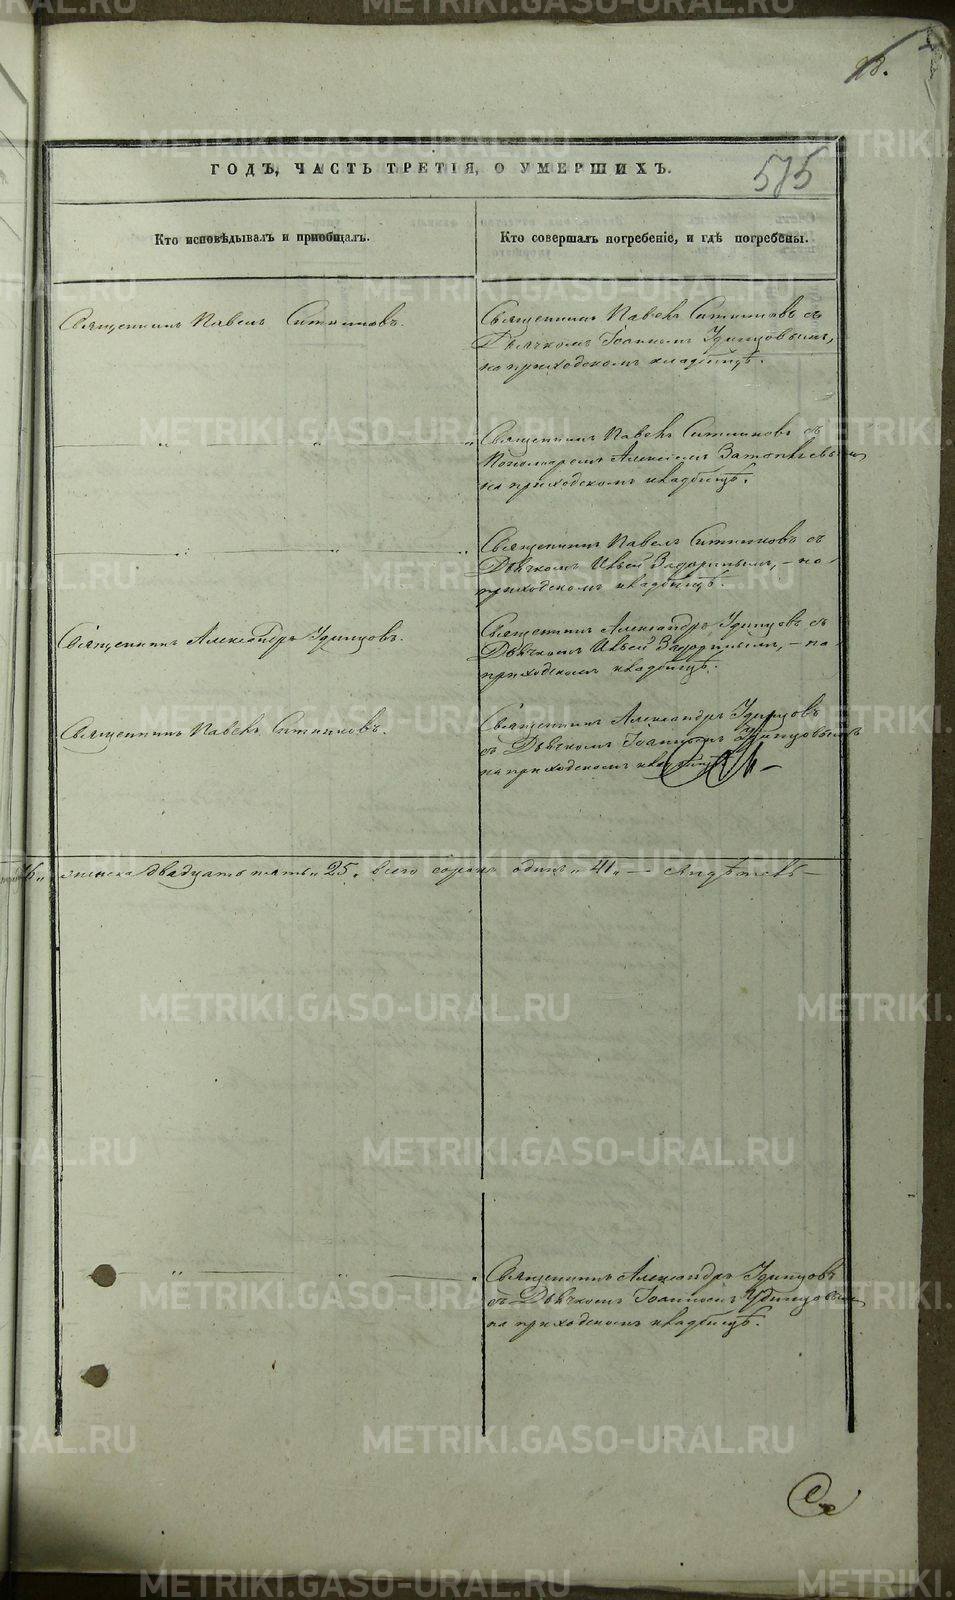 28.
575
ГОДЪ, ЧАСТЬ ТРЕТІЯ, О УМЕРШИХЪ.
Кто исповѣдывалъ и пріобщалъ.
Кто совершалъ погребеніе, и гдѣ погребены.
Священникъ Павелъ Ситниковъ.
Священникъ Павелъ Ситниковъ съ
Дьячкомъ Іоанномъ Удинцовымъ,
на приходскомъ кладбищѣ.
Священникъ Павелъ Ситниковъ съ
Пономаремъ Алексѣемъ
на приходскомъ кладбищѣ.
Священникъ Павелъ Ситниковъ съ
Дьячкомъ Ильей Задоринымъ, – на
приходскомъ кладбищѣ.
Священникъ Александръ Удинцовъ.
Священникъ Александръ Удинцовъ съ
Дьячкомъ Ильей Задоринымъ, – на
приходскомъ кладбищѣ.
Священникъ Павелъ Ситниковъ.
Священникъ Александръ Удинцовъ
съ Дьячкомъ Іоанномъ Удинцовымъ
на приходскомъ кладбищѣ
женска двадцать пять „25„ всего сорокъ одинъ „41„ —
Священникъ Александръ Удинцовъ
съ Дьячкомъ Іоанномъ Удинцовымъ
на приходскомъ кладбищѣ.
METRIKI.GASO-URAL.RU